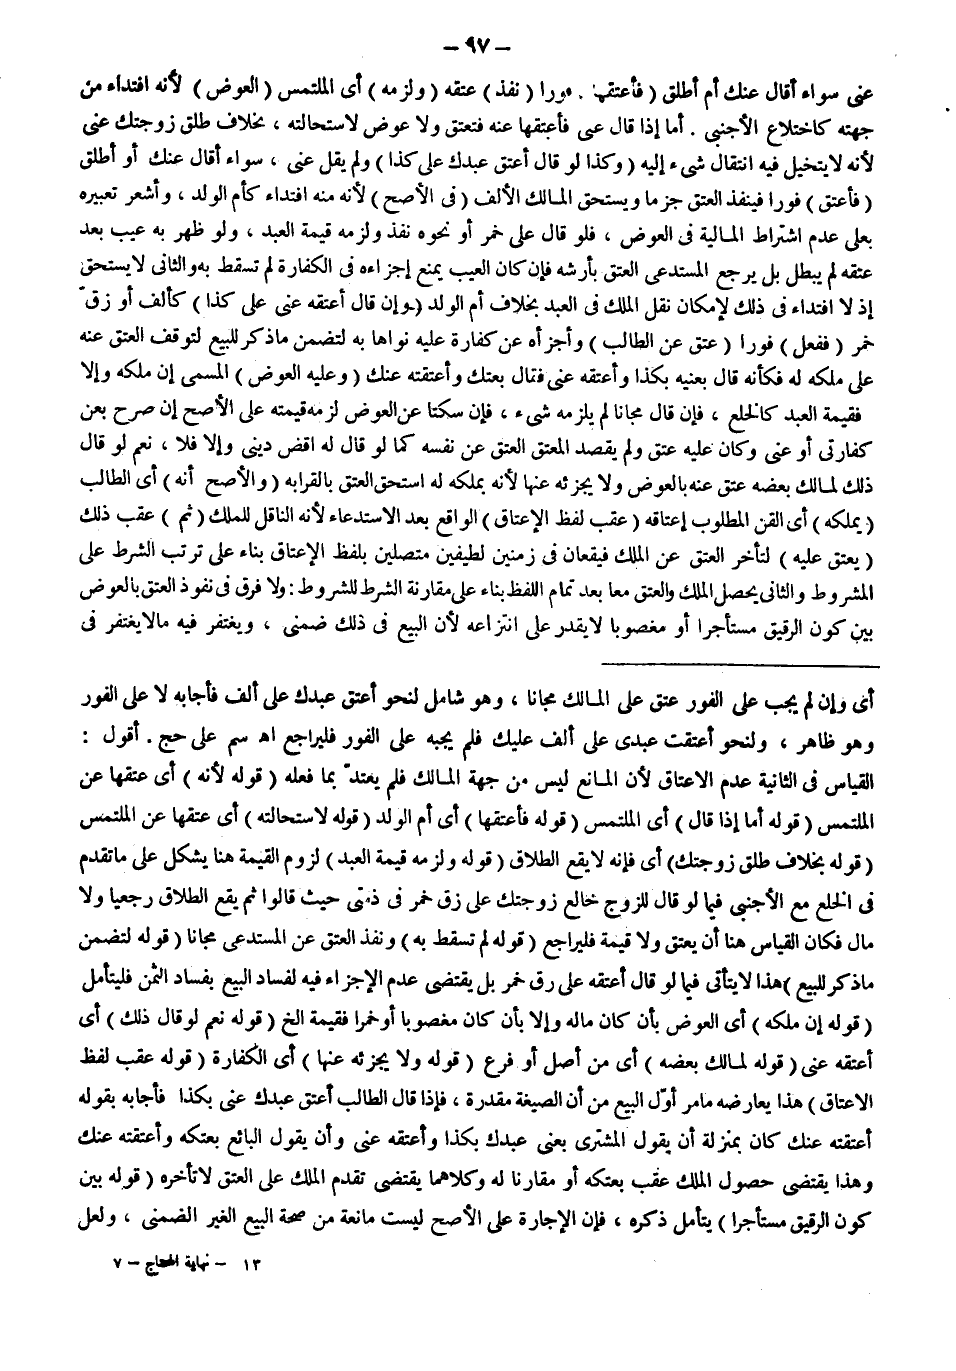 — ٩٧ —
عنى سواء أقال عنك أم أطلق ( فأعتقها . فورا ( نفذ ) عتقه ( ولزمه ) أى الملتمس ( العوض ) لأنه افتداء من
جهته كاختلاع الأجنبى . أما إذا قال عنى فأعتقها عنه فتعتق ولا عوض لاستحالته ، بخلاف طلق زوجتك عنى
لأنه لا يتخيل فيه انتقال شىء إليه ( وكذا لو قال أعتق عبدك على كذا ) ولم يقل عنى ، سواء أقال عنك أو أطلق
( فأعتق ) فورا فينفذ العتق جزما ويستحق المالك الألف ( فى الأصح ) لأنه منه افتداء كأم الولد ، وأشعر تعبيره
بعلى عدم اشتراط المالية فى العوض ، فلو قال على خمر أو نحوه نفذ ولزمه قيمة العبد ، ولو ظهر به عيب بعد
عتقه لم يبطل بل يرجع المستدعى العتق بأرشه فإن كان العيب يمنع إجزاءه فى الكفارة لم تسقط به والثانى لا يستحق
إذ لا افتداء فى ذلك لإمكان نقل الملك فى العبد بخلاف أم الولد ( وإن قال أعتقه عنى على كذا ) كألف أو زقّ
خمر ( ففعل ) فورا ( عتق عن الطالب ) وأجزأه عن كفارة عليه نواها به لتضمن ماذكر للبيع لتوقف العتق عنه
على ملكه له فكأنه قال بعنيه بكذا وأعتقه عنى فقال بعتك وأعتقته عنك ( وعليه العوض ) المسمى إن ملكه وإلا
فقيمة العبد كالخلع ، فإن قال مجانا لم يلزمه شىء ، فإن سكتا عن العوض لزمه قيمته على الأصح إن صرح بعن
كفارتى أو عنى وكان عليه عتق ولم يقصد المعتق العتق عن نفسه كما لو قال له اقض دينى وإلا فلا ، نعم لو قال
ذلك لمالك بعضه عتق عنه بالعوض ولا يجزئه عنها لأنه بملكه له استحق العتق بالقرابه ( والأصح أنه ) أى الطالب
( يملكه ) أى القن المطلوب إعتاقه ( عقب لفظ الإعتاق ) الواقع بعد الاستدعاء لأنه الناقل للملك ( ثم ) عقب ذلك
( يعتق عليه ) لتأخر العتق عن الملك فيقعان فى زمنين لطيفين متصلين بلفظ الإعتاق بناء على ترتب الشرط على
المشروط والثانى يحصل الملك والعتق معا بعد تمام اللفظ بناء على مقارنة الشرط للشروط : ولا فرق فى نفوذ العتق بالعوض
بين كون الرقيق مستأجرا أو مغصوبا لا يقدر على انتزاعه لأن البيع فى ذلك ضمنى ، ويغتفر فيه مالا يغتفر فى
أى وإن لم يجب على الفور عتق على المالك مجانا ، وهو شامل لنحو أعتق عبدك على ألف فأجابه لا على الفور
وهو ظاهر ، ولنحو أعتقت عبدى على ألف عليك فلم يجبه على الفور فليراجع اه سم على حج . أقول :
القياس فى الثانية عدم الاعتاق لأن المانع ليس من جهة المالك فلم يعتدّ بما فعله ( قوله لأنه ) أى عتقها عن
الملتمس ( قوله أما إذا قال ) أى الملتمس ( قوله فأعتقها ) أى أم الولد ( قوله لاستحالته ) أى عتقها عن الملتمس
( قوله بخلاف طلق زوجتك ) أى فإنه لا يقع الطلاق ( قوله ولزمه قيمة العبد ) لزوم القيمة هنا يشكل على ماتقدم
فى الخلع مع الأجنبى فيما لو قال للزوج خالع زوجتك على زق خمر فى ذمتى حيث قالوا ثم يقع الطلاق رجعيا ولا
مال فكان القياس هنا أن يعتق ولا قيمة فليراجع ( قوله لم تسقط به ) ونفذ العتق عن المستدعى مجانا ( قوله لتضمن
ماذكر للبيع ) هذا لا يتأتى فيما لو قال أعتقه على رق خمر بل يقتضى عدم الإجزاء فيه لفساد البيع بفساد الثمن فليتأمل
( قوله إن ملكه ) أى العوض بأن كان ماله وإلا بأن كان مغصوبا أو خمرا فقيمة الخ ( قوله نعم لو قال ذلك ) أى
أعتقه عنى ( قوله لمالك بعضه ) أى من أصل أو فرع ( قوله ولا يجزئه عنها ) أى الكفارة ( قوله عقب لفظ
الاعتاق ) هذا يعارضه مامر أوّل البيع من أن الصيغة مقدرة ، فإذا قال الطالب أعتق عبدك عنى بكذا فأجابه بقوله
أعتقته عنك كان بمنزلة أن يقول المشترى بعنى عبدك بكذا وأعتقه عنى وأن يقول البائع بعتكه وأعتقته عنك
وهذا يقتضى حصول الملك عقب بعتكه أو مقارنا له وكلاهما يقتضى تقدم الملك على العتق لا تأخره ( قوله بين
كون الرقيق مستأجرا ) يتأمل ذكره ، فإن الإجارة على الأصح ليست مانعة من صحة البيع الغير الضمنى ، ولعل
١٣ – نهاية المحتاج – ٧